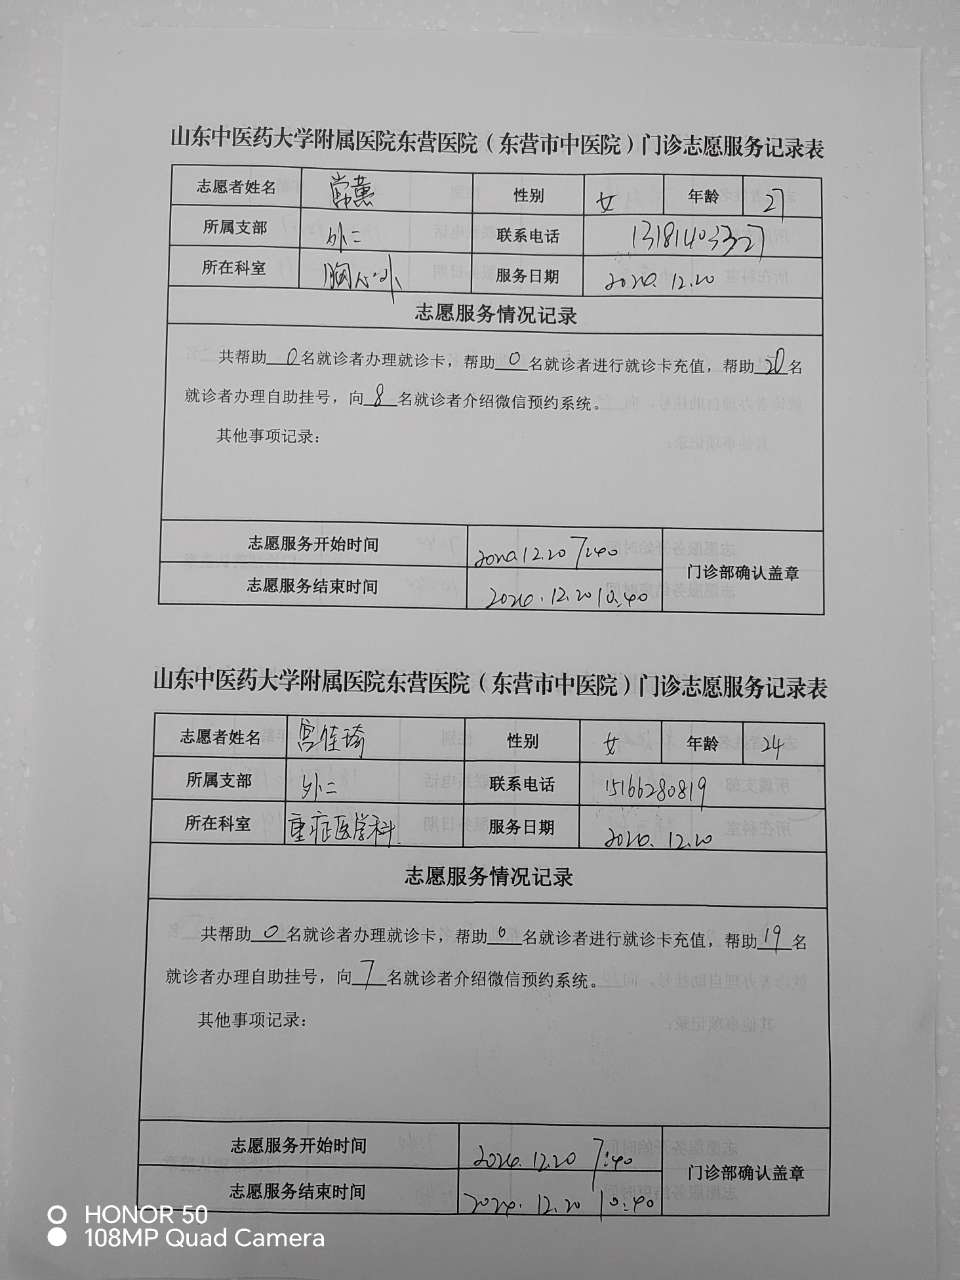 山东中医药大学附属医院东营医院（东营市中医院）门诊志愿服务记录表
志愿者姓名 常蕙 性别 女 年龄 27
所属支部 外二 联系电话 13181403327
所在科室 胸心外 服务日期 2024.12.20
志愿服务情况记录
共帮助0名就诊者办理就诊卡，帮助0名就诊者进行就诊卡充值，帮助20名
就诊者办理自助挂号，向8名就诊者介绍微信预约系统。
其他事项记录：
志愿服务开始时间 2024.12.20 7:40
门诊部确认盖章
志愿服务结束时间 2024.12.20 10:40
山东中医药大学附属医院东营医院（东营市中医院）门诊志愿服务记录表
志愿者姓名 宫佳琦 性别 女 年龄 24
所属支部 外二 联系电话 15166280819
所在科室 重症医学科 服务日期 2024.12.20
志愿服务情况记录
共帮助0名就诊者办理就诊卡，帮助0名就诊者进行就诊卡充值，帮助19名
就诊者办理自助挂号，向7名就诊者介绍微信预约系统。
其他事项记录：
志愿服务开始时间 2024.12.20 7:40
门诊部确认盖章
志愿服务结束时间 2024.12.20 10:40
HONOR 50
108MP Quad Camera